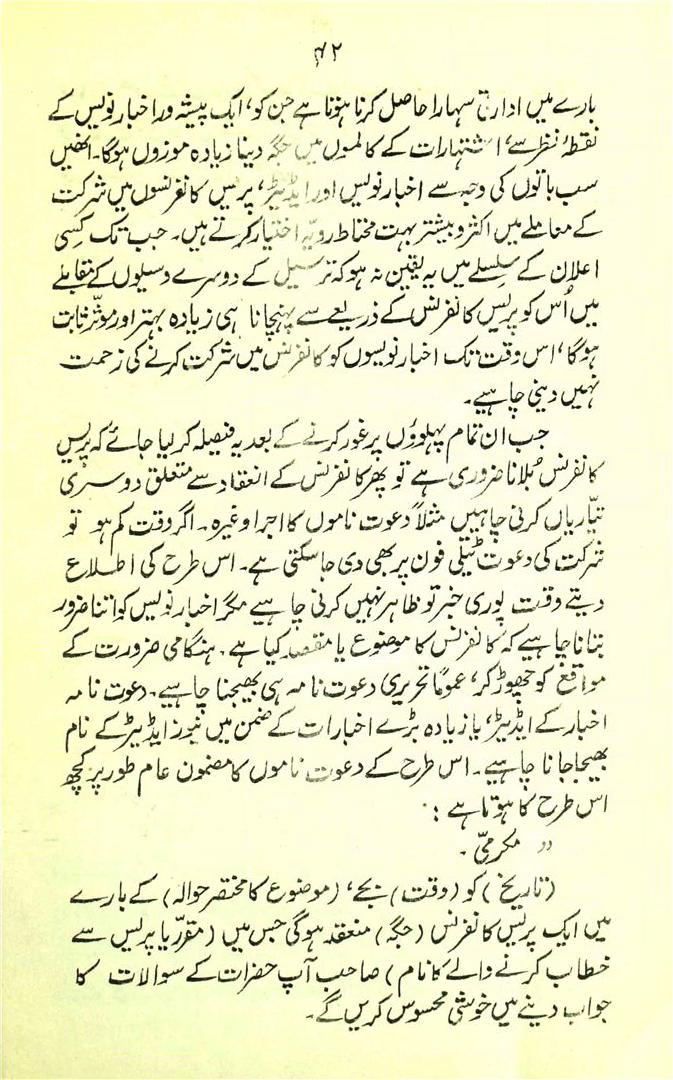 ۴۲
بارے میں ادارتی سہارا حاصل کرنا ہوتا ہے جن کو، ایک پیشہ ور اخبار نویس کے
نقطۂ نظر سے، اشتہارات کے کالموں میں جگہ دینا زیادہ موزوں ہوگا۔ انھیں
سب باتوں کی وجہ سے اخبار نویس اور ایڈیٹر، پریس کانفرنسوں میں شرکت
کے معاملے میں اکثر و بیشتر بہت محتاط رویّہ اختیار کرتے ہیں۔ جب تک کسی
اعلان کے سلسلے میں یہ یقین نہ ہو کہ ترسیل کے دوسرے وسیلوں کے مقابلے
میں اُس کو پریس کانفرنس کے ذریعے سے پہنچانا ہی زیادہ بہتر اور موثّر ثابت
ہوگا، اس وقت تک اخبار نویسوں کو کانفرنس میں شرکت کرنے کی زحمت
نہیں دینی چاہیے۔
جب ان تمام پہلوؤں پر غور کرنے کے بعد یہ فیصلہ کر لیا جائے کہ پریس
کانفرنس بُلانا ضروری ہے تو پھر کانفرنس کے انعقاد سے متعلق دوسری
تیّاریاں کرنی چاہیں مثلاً دعوت ناموں کا اجرا وغیرہ۔ اگر وقت کم ہو تو
شرکت کی دعوت ٹیلی فون پر بھی دی جا سکتی ہے۔ اس طرح کی اطلاع
دیتے وقت پوری خبر تو ظاہر نہیں کرنی چاہیے مگر اخبار نویس کو اتنا ضرور
بتانا چاہیے کہ کانفرنس کا موضوع یا مقصد کیا ہے۔ ہنگامی ضرورت کے
مواقع کو چھوڑ کر، عموماً تحریری دعوت نامہ ہی بھیجنا چاہیے۔ دعوت نامہ
اخبار کے ایڈیٹر، یا زیادہ بڑے اخبارات کے ضمن میں نیوز ایڈیٹر کے نام
بھیجا جانا چاہیے۔ اس طرح کے دعوت ناموں کا مضمون عام طور پر کچھ
اس طرح کا ہوتا ہے :
" مکرمیّ۔
(تاریخ) کو (وقت) بجے، (موضوع کا مختصر حوالہ) کے بارے
میں ایک پریس کانفرنس (جگہ) منعقد ہوگی جس میں (مقرّر یا پریس سے
خطاب کرنے والے کا نام) صاحب آپ حضرات کے سوالات کا
جواب دینے میں خوشی محسوس کریں گے۔